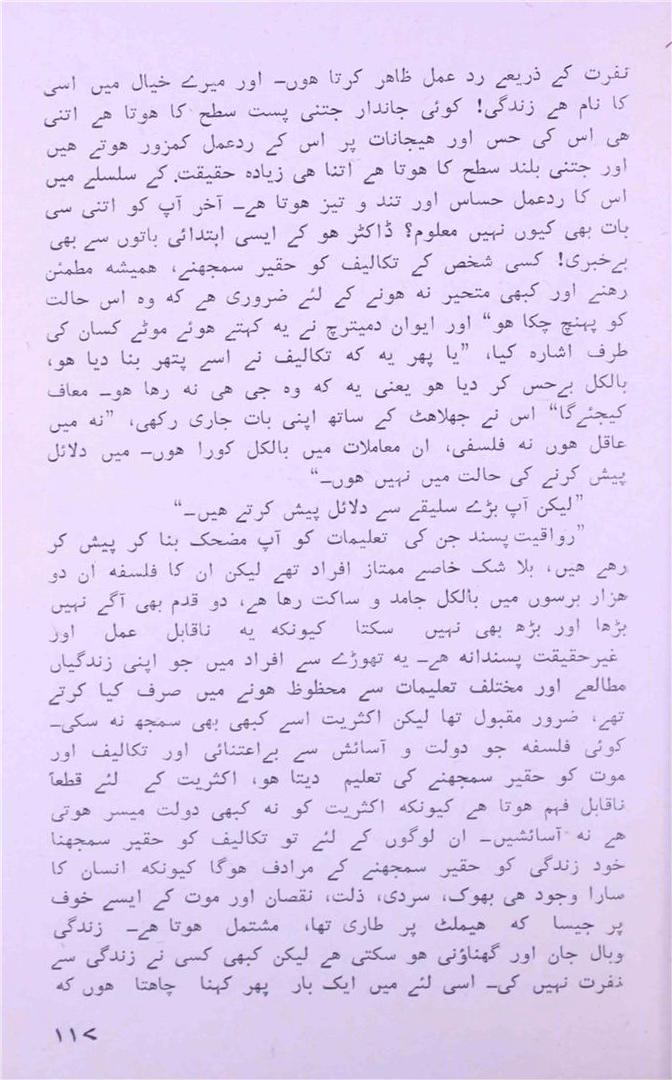 نفرت کے ذریعے رد عمل ظاہر کرتا ہوں۔ اور میرے خیال میں اسی
کا نام ہے زندگی! کوئی جاندار جتنی پست سطح کا ہوتا ہے اتنی
ہی اس کی حس اور ہیجانات پر اس کے ردعمل کمزور ہوتے ہیں
اور جتنی بلند سطح کا ہوتا ہے اتنا ہی زیادہ حقیقت کے سلسلے میں
اس کا ردعمل حساس اور تند و تیز ہوتا ہے۔ آخر آپ کو اتنی سی
بات بھی کیوں نہیں معلوم؟ ڈاکٹر ہو کے ایسی ابتدائی باتوں سے بھی
بےخبری! کسی شخص کے تکالیف کو حقیر سمجھنے، ہمیشہ مطمئن
رہنے اور کبھی متحیر نہ ہونے کے لئے ضروری ہے کہ وہ اس حالت
کو پہنچ چکا ہو“ اور ایوان دمیترچ نے یہ کہتے ہوئے موٹے کسان کی
طرف اشارہ کیا، ”یا پھر یہ کہ تکالیف نے اسے پتھر بنا دیا ہو،
بالکل بےحس کر دیا ہو یعنی یہ کہ وہ جی ہی نہ رہا ہو۔ معاف
کیجئےگا“ اس نے جھلاہٹ کے ساتھ اپنی بات جاری رکھی، ”نہ میں
عاقل ہوں نہ فلسفی، ان معاملات میں بالکل کورا ہوں۔ میں دلائل
پیش کرنے کی حالت میں نہیں ہوں۔“
”لیکن آپ بڑے سلیقے سے دلائل پیش کرتے ہیں۔“
”رواقیت پسند جن کی تعلیمات کو آپ مضحک بنا کر پیش کر
رہے ہیں، بلا شک خاصے ممتاز افراد تھے لیکن ان کا فلسفہ ان دو
ہزار برسوں میں بالکل جامد و ساکت رہا ہے، دو قدم بھی آگے نہیں
بڑھا اور بڑھ بھی نہیں سکتا کیونکہ یہ ناقابل عمل اور
غیرحقیقت پسندانہ ہے۔ یہ تھوڑے سے افراد میں جو اپنی زندگیاں
مطالعے اور مختلف تعلیمات سے محظوظ ہونے میں صرف کیا کرتے
تھے، ضرور مقبول تھا لیکن اکثریت اسے کبھی بھی سمجھ نہ سکی۔
کوئی فلسفہ جو دولت و آسائش سے بےاعتنائی اور تکالیف اور
موت کو حقیر سمجھنے کی تعلیم دیتا ہو، اکثریت کے لئے قطعاً
ناقابل فہم ہوتا ہے کیونکہ اکثریت کو نہ کبھی دولت میسر ہوتی
ہے نہ آسائشیں۔ ان لوگوں کے لئے تو تکالیف کو حقیر سمجھنا
خود زندگی کو حقیر سمجھنے کے مرادف ہوگا کیونکہ انسان کا
سارا وجود ہی بھوک، سردی، ذلت، نقصان اور موت کے ایسے خوف
پر جیسا کہ ہیملٹ پر طاری تھا، مشتمل ہوتا ہے۔ زندگی
وبال جان اور گھناؤنی ہو سکتی ہے لیکن کبھی کسی نے زندگی سے
نفرت نہیں کی۔ اسی لئے میں ایک بار پھر کہنا چاہتا ہوں کہ
۱۱۷